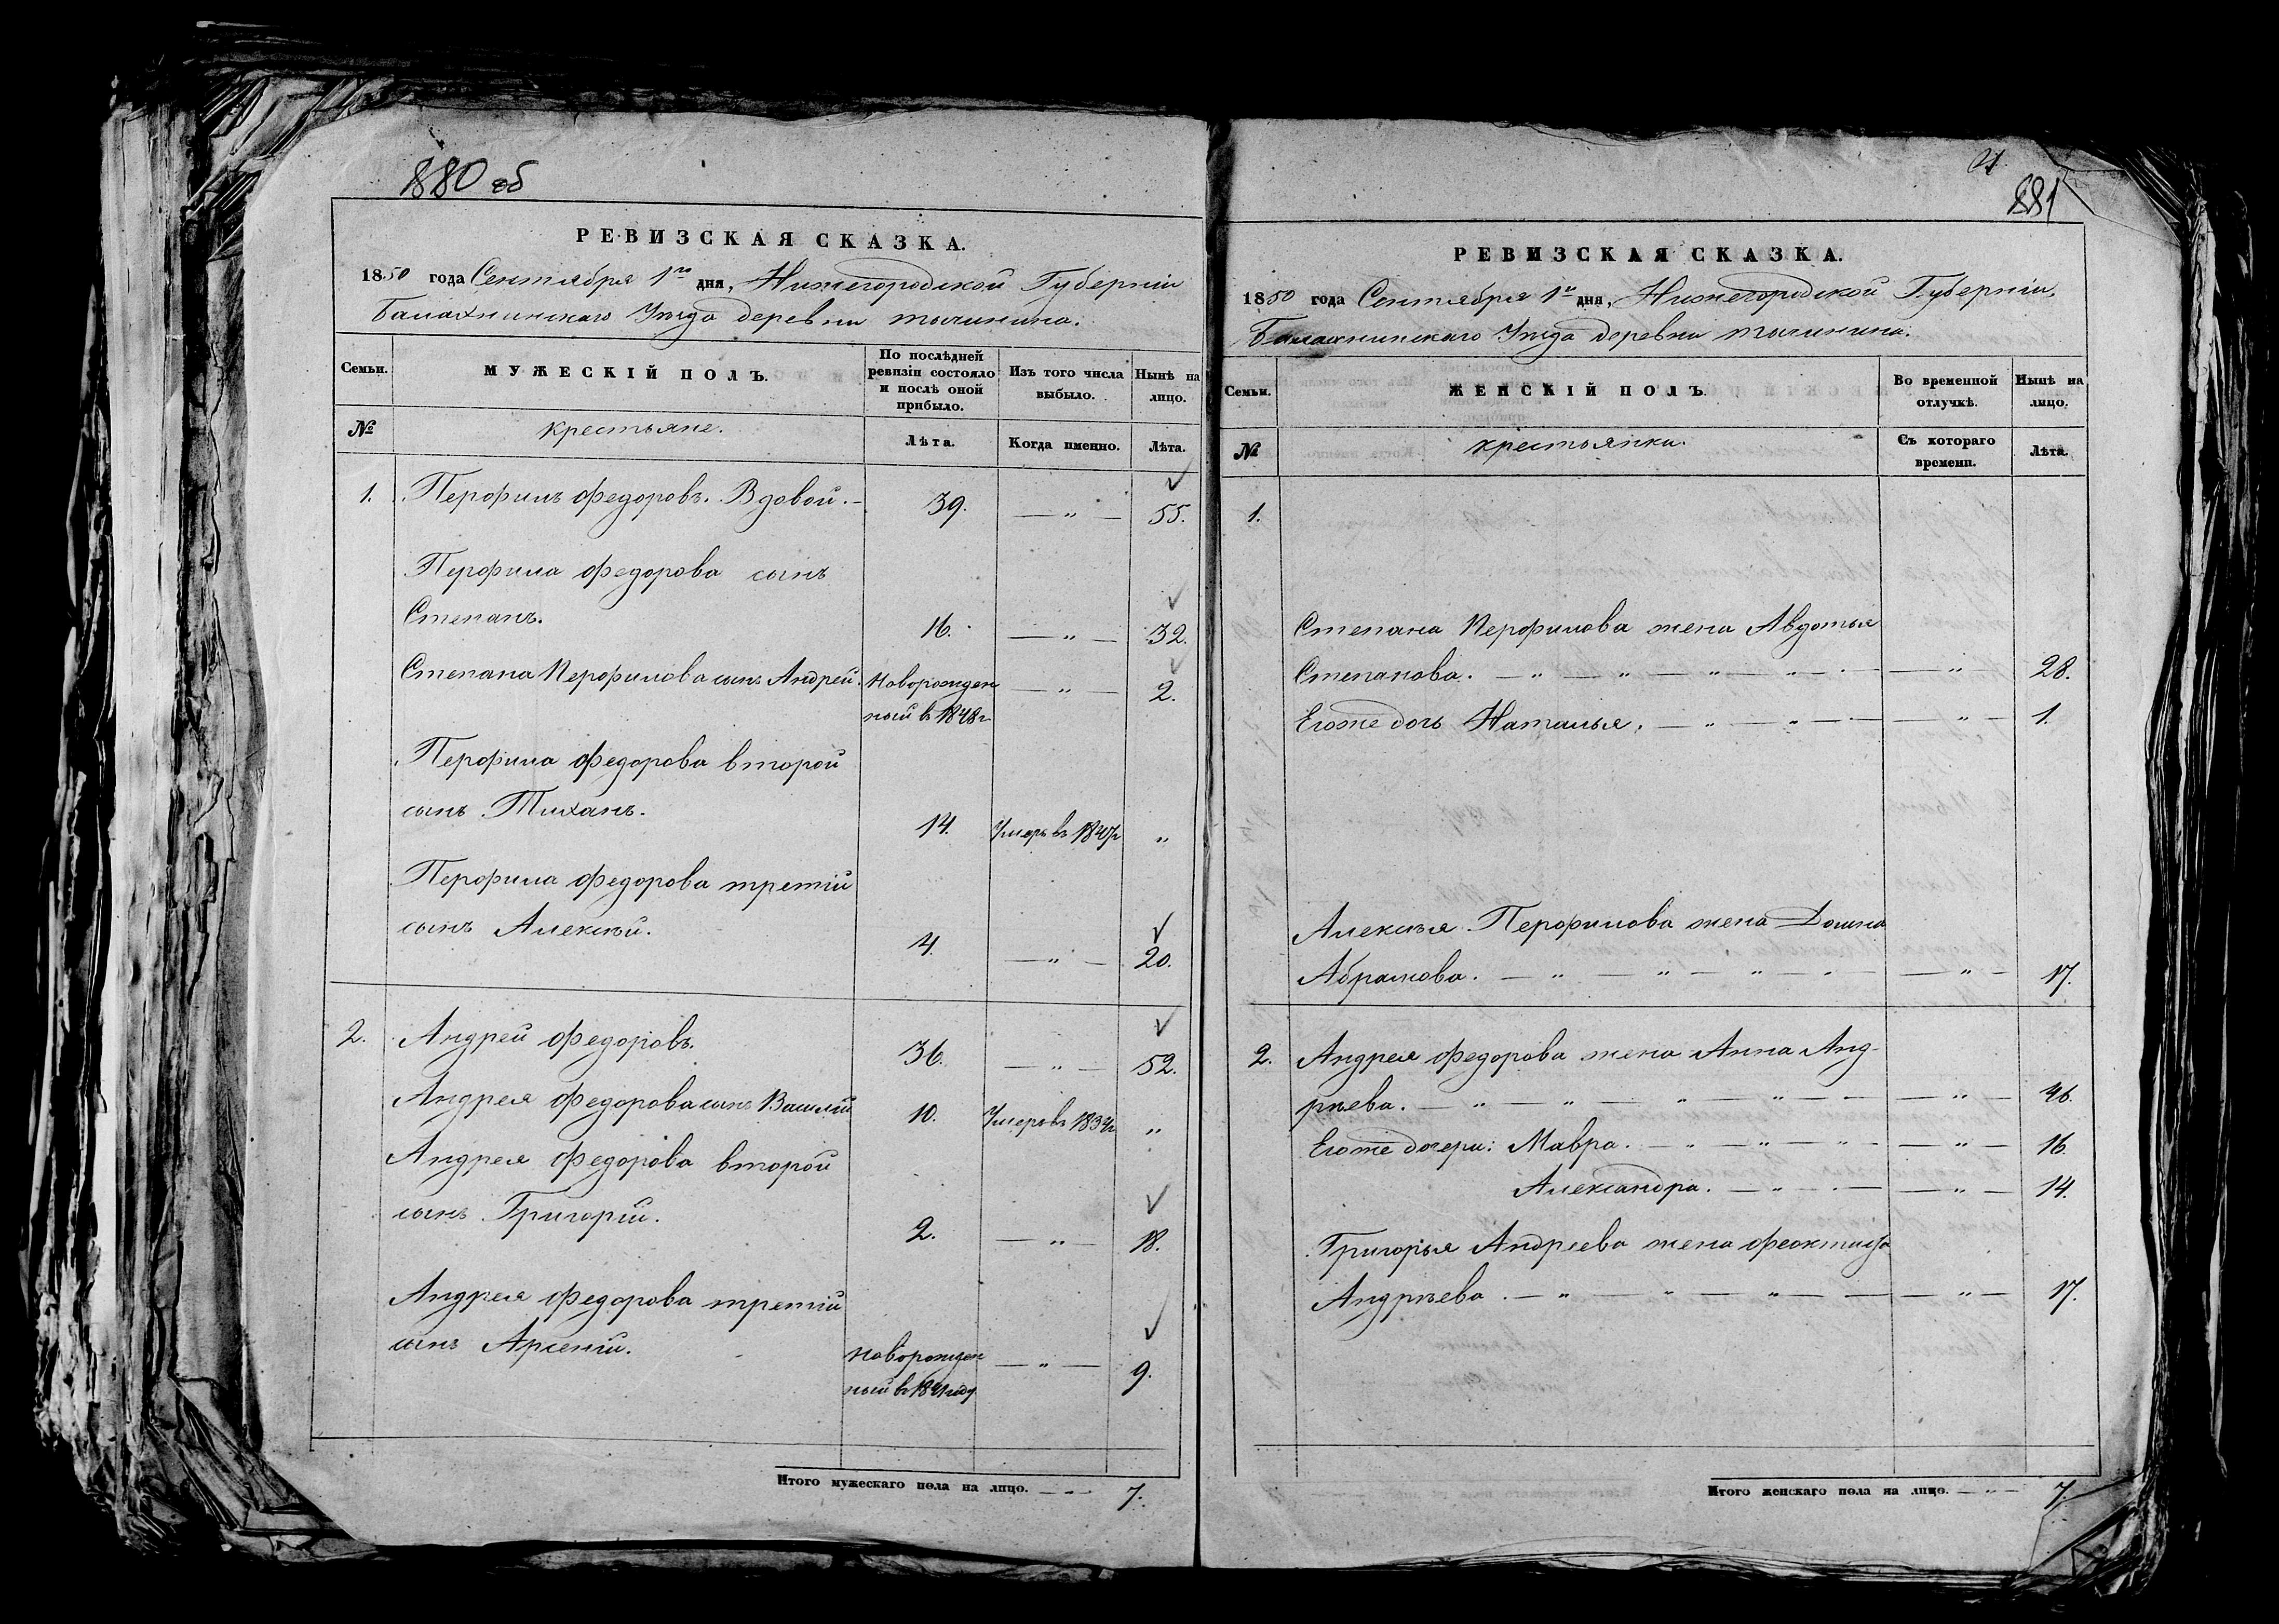 880 об
РЕВИЗСКАЯ СКАЗКА.
1850 года Сентября 1го дня, Нижегородской Губерніи
Балахнинскаго Уѣзда деревни
Семьи. МУЖЕСКІЙ ПОЛЪ. По послѣдней ревизіи состояло и послѣ оной прибыло. Изъ того числа выбыло. Нынѣ на лицо.
№ крестьяне. Лѣта. Когда именно. Лѣта.
1. Перфилъ Федоровъ. Вдовой. — 39. — „ — 55.
Перфила Федорова сынъ
Степанъ. 16. — „ — 32.
Степана Перфилова сынъ Андрей. Новорожден — „ — 2.
ный в 1848г
Перфила Федорова второй
сынъ Тиханъ. 14. Умеръ въ „
Перфила Федорова третій
сынъ Алексѣй. 4. — „ — 20.
2. Андрей Федоровъ. 36. — „ — 52.
Андрея Федорова сынъ Василій 10. Умеръ въ „
Андрея Федорова второй
сынъ Григорій. 2. — „ — 18.
Андрея Федорова третій
сынъ Арсеній. Новорожден — „ — 9.
ный въ 1841 году
Итого мужескаго пола на лицо. — „ — 7.
881
РЕВИЗСКАЯ СКАЗКА.
1850 года Сентября 1го дня, Нижегородской Губерніи,
Балахнинскаго Уѣзда деревни
Семьи. ЖЕНСКІЙ ПОЛЪ. Во временной отлучкѣ. Нынѣ на лицо.
№ крестьянки. Съ котораго времени. Лѣта.
1.
Степана Перфилова жена Авдотья
Степанова. — „ — „ — „ — „ — — „ — 28.
Егоже дочь Наталья. — „ — „ — — „ — 1.
Алексѣя Перфилова жена Домна
Абрамова. — „ — „ — „ — — „ — 17.
2. Андрея Федорова жена Анна Анд-
рѣева. — „ — „ — „ — „ — — „ — 46.
Егоже дочери: Мавра. — „ — „ — „ — — „ — 16.
Александра. — „ — — „ — 14.
Григорья Андреева жена Феоктиста
Андрѣева. — „ — „ — „ — — „ — 17.
Итого женскаго пола на лицо. — „ — 7.